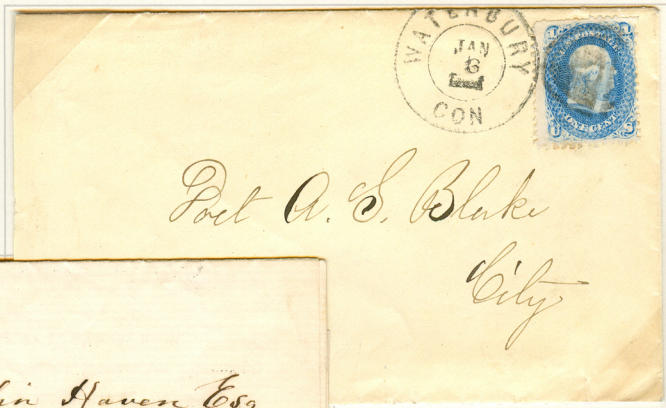 WATERBURY
JAN
6
CON
U.S. POSTAGE
ONE CENT
U S
A. S. Blake
City
Haven Esq